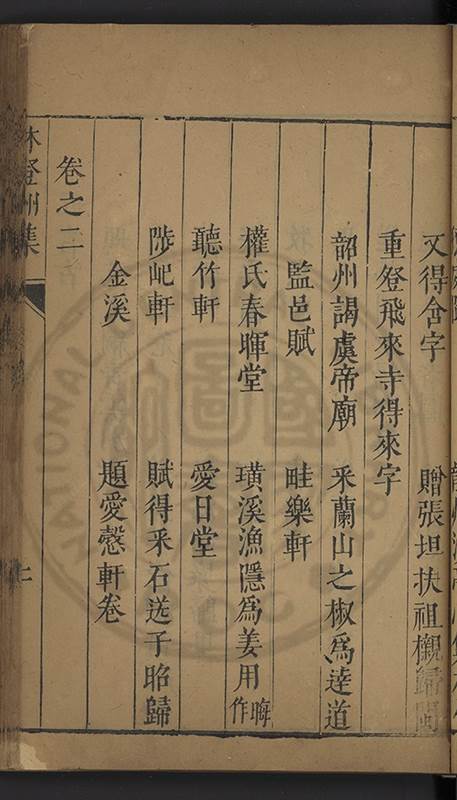 又得含字　贈張坦扶祖櫬歸閩
重登飛來寺得來字
韶州謁虞帝廟　采蘭山之椒爲逹道
監邑賦　畦樂軒
權氏春暉堂　璜溪漁隱爲姜用晦作
聽竹軒　愛日堂
陟屺軒　賦得采石送子昭歸
金溪　題愛慤軒卷
卷之二
林登州集